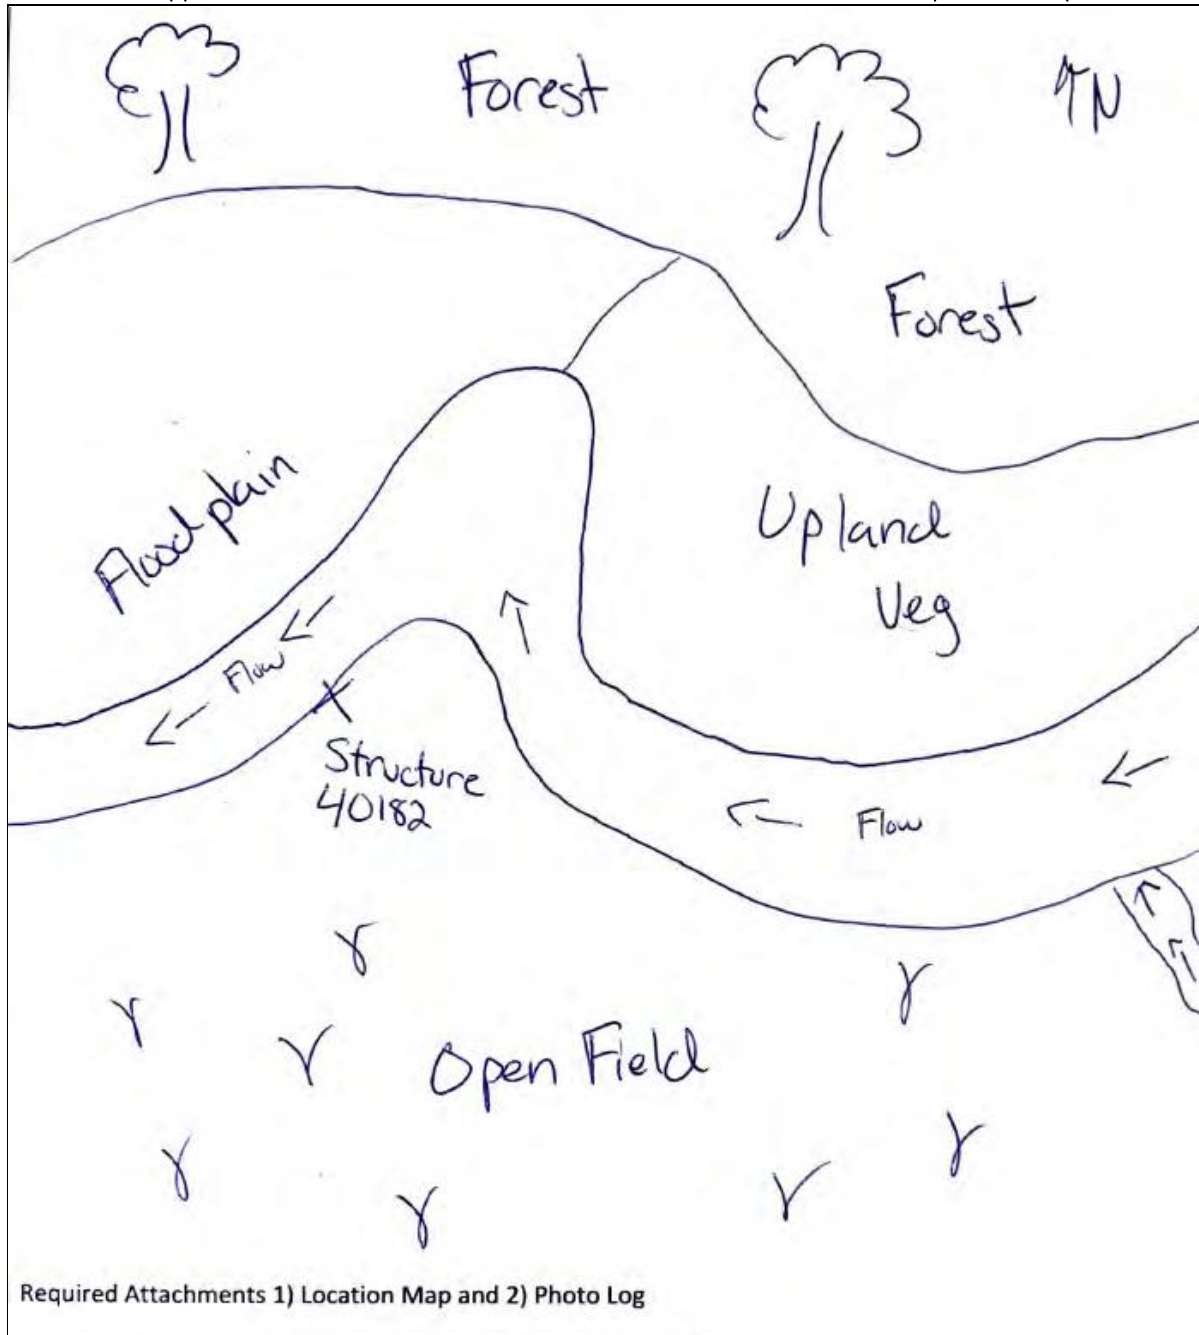 Forest
N
Forest
Floodplain
Upland
Veg
Flow
Structure
40182
Flow
Open Field
Required Attachments 1) Location Map and 2) Photo Log